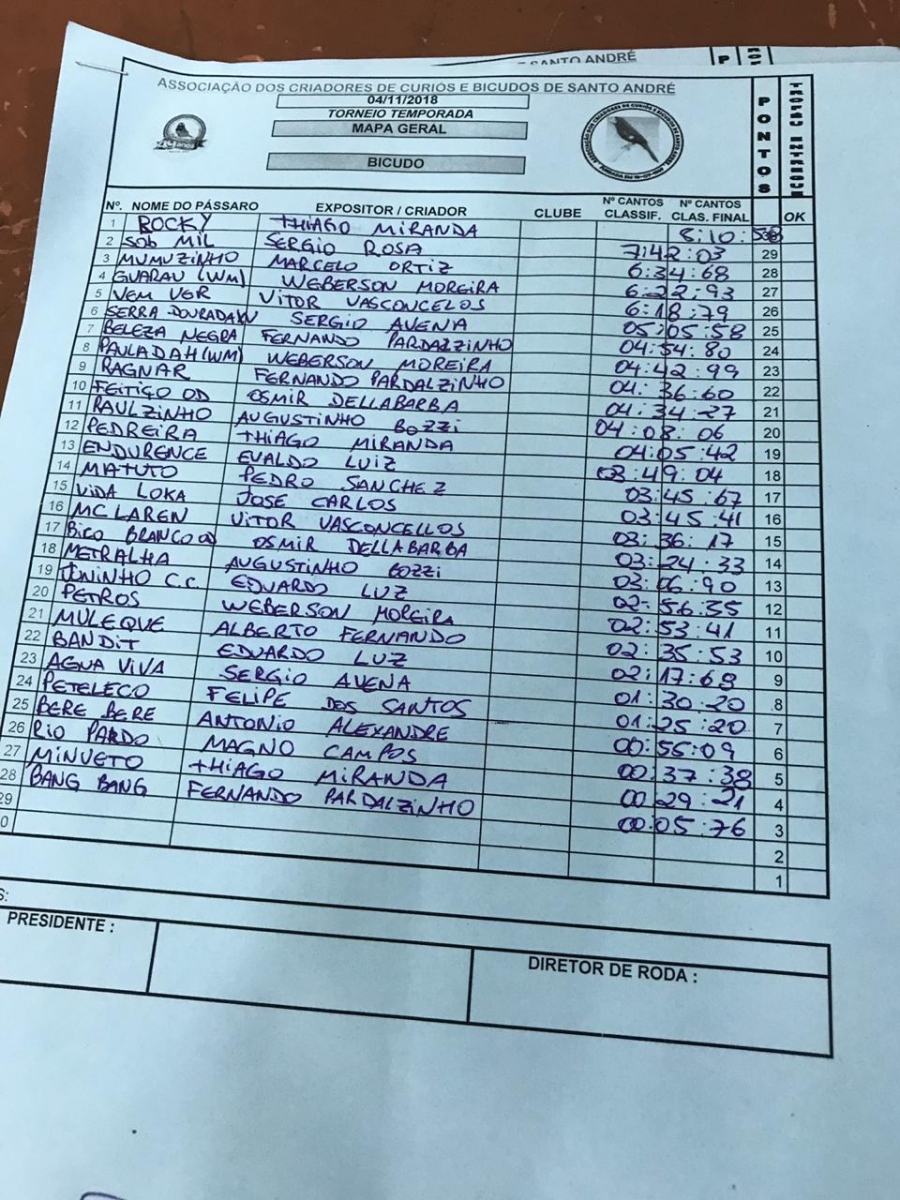 SANTO ANDRÉ
ASSOCIAÇÃO DOS CRIADORES DE CURIÓS E BICUDOS DE SANTO ANDRÉ
04/11/2018
TORNEIO TEMPORADA
MAPA GERAL
BICUDO
PONTOS
TROFÉU ENTREGUE
Nº. NOME DO PÁSSARO EXPOSITOR / CRIADOR CLUBE Nº CANTOS CLASSIF. Nº CANTOS CLAS. FINAL OK
1 ROCKY THIAGO MIRANDA 8:10:
2 SOB MIL SERGIO ROSA 7:42:03 29
3 MUMUZINHO MARCELO ORTIZ 6:34:68 28
4 GUARAU (WM) WEBERSON MOREIRA 6:22:93 27
5 VEM VER VITOR VASCONCELOS 6:18:79 26
6 SERRA DOURADA SERGIO AVENA 05:05:58 25
7 BELEZA NEGRA FERNANDO PARDALZINHO 04:54:80 24
8 PAULADAH (WM) WEBERSON MOREIRA 04:42:99 23
9 RAGNAR FERNANDO PARDALZINHO 04:36:60 22
10 FEITIÇO OD OSMIR DELLABARBA 04:34:27 21
11 RAULZINHO AUGUSTINHO BOZZI 04:08:06 20
12 PEDREIRA THIAGO MIRANDA 04:05:42 19
13 ENDURENCE EVALDO LUIZ 03:49:04 18
14 MATUTO PEDRO SANCHEZ 03:45:67 17
15 VIDA LOKA JOSE CARLOS 03:45:41 16
16 MC LAREN VITOR VASCONCELLOS 03:36:17 15
17 BICO BRANCO OD OSMIR DELLABARBA 03:24:33 14
18 METRALHA AUGUSTINHO BOZZI 03:06:90 13
19 JUNINHO C.C. EDUARDO LUZ 02:56:35 12
20 PETROS WEBERSON MOREIRA 02:53:41 11
21 MULEQUE ALBERTO FERNANDO 02:35:53 10
22 BANDIT EDUARDO LUZ 02:17:68 9
23 AGUA VIVA SERGIO AVENA 01:30:20 8
24 PETELECO FELIPE DOS SANTOS 01:25:20 7
25 BERE BERE ANTONIO ALEXANDRE 00:55:09 6
26 RIO PARDO MAGNO CAMPOS 00:37:38 5
27 MINUETO THIAGO MIRANDA 00:29:21 4
28 BANG BANG FERNANDO PARDALZINHO 00:05:76 3
29 2
0 1
S:
PRESIDENTE :
DIRETOR DE RODA :